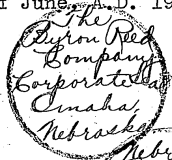 of June, A.D. 19
The
Byron Reed
Company
Corporate Seal
Omaha,
Nebraska
Nebr